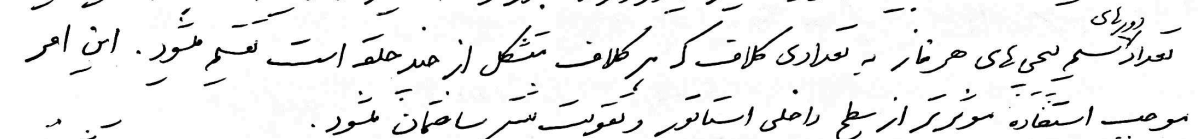 تعداد دورهای سیم پیچی های هر فاز به تعدادی کلاف که هر کلاف متشکل از چند حلقه است تقسیم میشود. این امر
موجب استفاده موثرتر از سطح داخلی استاتور و تقویت بیشتر ساختمان میشود.